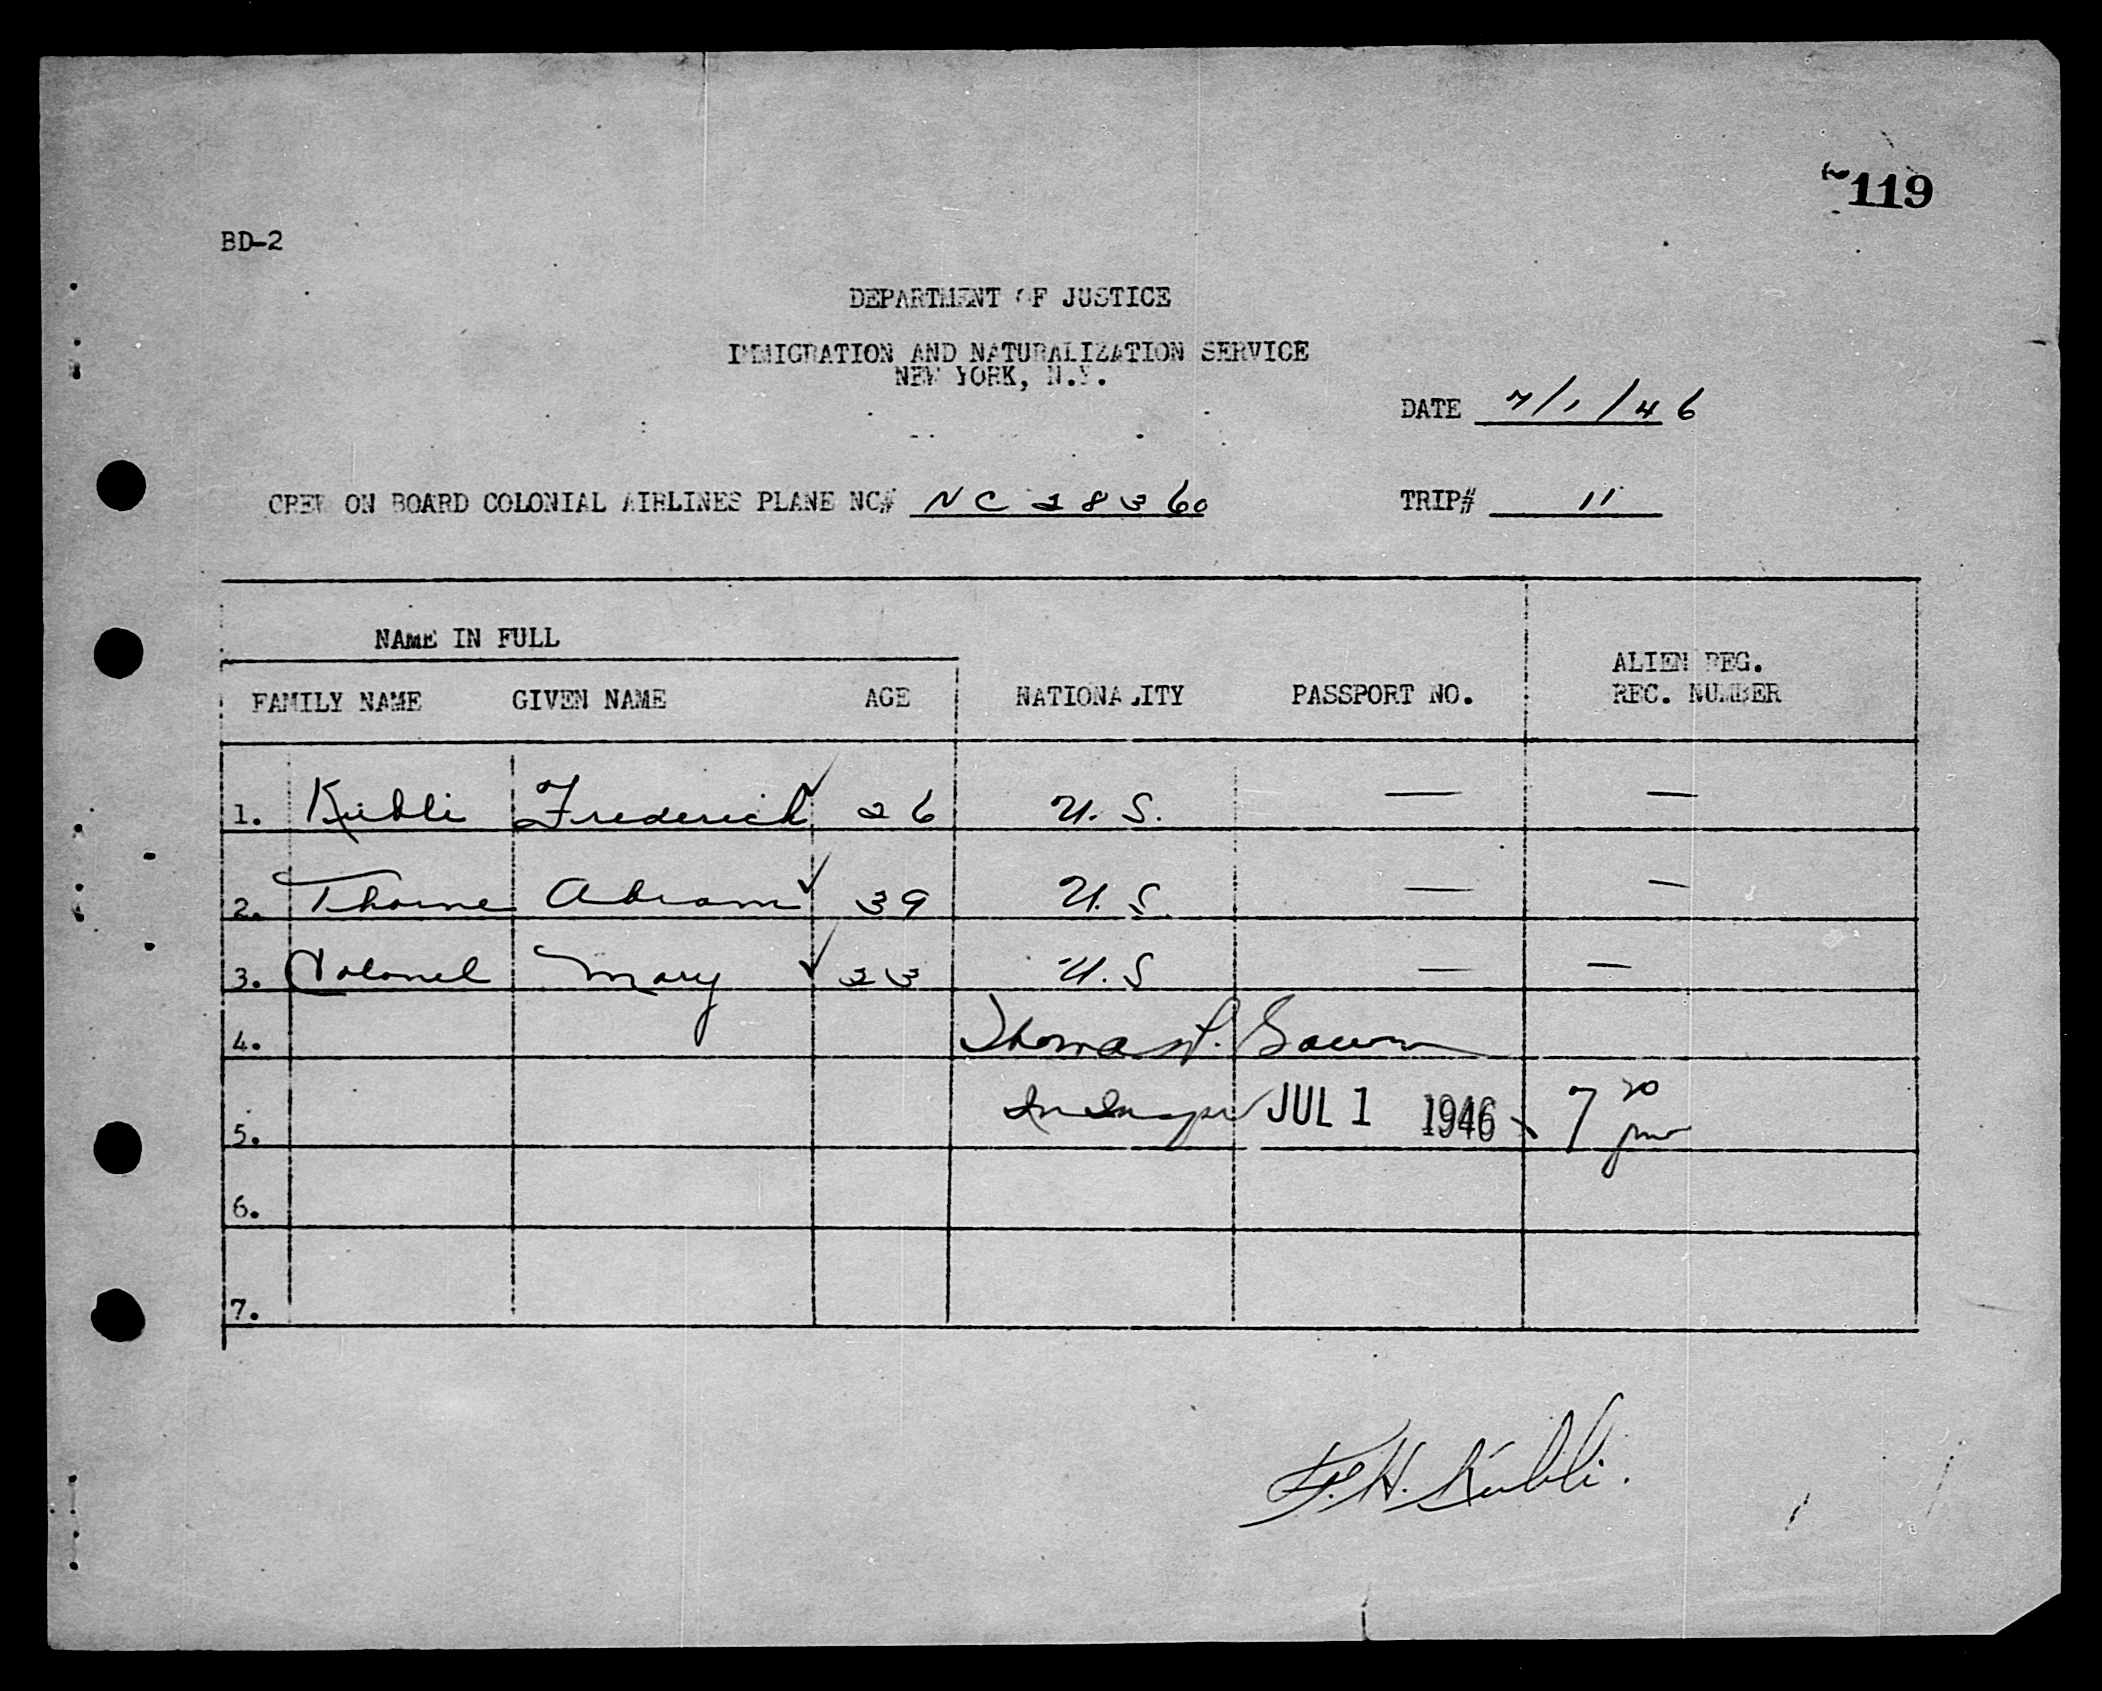 119
BD-2
DEPARTMENT OF JUSTICE
IMMIGRATION AND NATURALIZATION SERVICE
NEW YORK, N.Y.
DATE 7/1/46
CREW ON BOARD COLONIAL AIRLINES PLANE NC# NC 28360 TRIP# 11
NAME IN FULL
ALIEN REG.
FAMILY NAME GIVEN NAME AGE NATIONALITY PASSPORT NO. REC. NUMBER
1. Kubli Frederick ✓ 26 U.S. — —
2. Thorne Abram ✓ 39 U.S. — —
3. Colonel Mary ✓ 23 U.S — —
4. Thomas
5. JUL 1 1946 7 pm
6.
7.
F.H. Kubli.